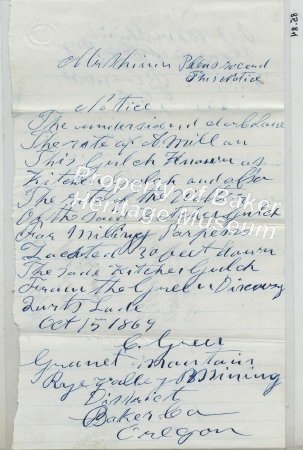 Mr Thinin Pleas record
This Notice
Notice
The undersigned do Claim
The rote of A Mill on
This Gulch Known as
Kitchen Gulch and also
The of the Water
Of the said Kitchen Gulch
For Milling Purpeses
Located 30 feet down
The said Kitchen Gulch
From the Green Discovry
Quarts Lode
Oct 15 1869
C. Green
Granet Mountain
Rye Valley Mining
District
Baker Co
Oregon
Property of Baker
Heritage Museum